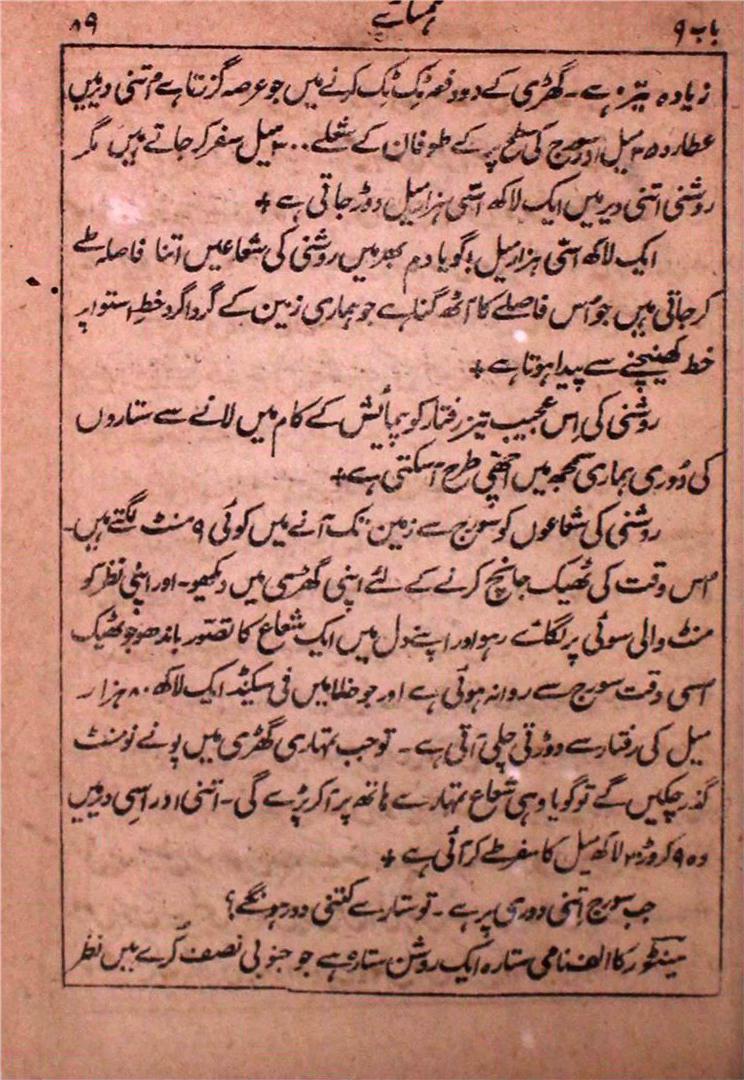 باب ۹ ہمسائے ۸۹
زیادہ تیز ہے۔ گھڑی کے دو دفعہ ٹِک ٹِک کرنے میں جو عرصہ گزرتا ہے اُتنی دیر میں
عطارد ۳۵ میل اور سورج کی سطح پر کے طوفان کے شعلے ۳۰۰ میل سفر کر جاتے ہیں مگر
روشنی اتنی دیر میں ایک لاکھ اسّی ہزار میل دوڑ جاتی ہے +
ایک لاکھ اسّی ہزار میل! گویا دم بھر میں روشنی کی شعاعیں اتنا فاصلہ طے
کر جاتی ہیں جو اُس فاصلے کا آٹھ گنا ہے جو ہماری زمین کے گرداگرد خطِ استوا پر
خط کھینچنے سے پیدا ہوتا ہے +
روشنی کی اِس عجیب تیز رفتار کو پیمائش کے کام میں لانے سے ستاروں
کی دُوری ہماری سمجھ میں اچھّی طرح آ سکتی ہے +
روشنی کی شعاعوں کو سورج سے زمین تک آنے میں کوئی ۹ منٹ لگتے ہیں۔
اُس وقت کی ٹھیک جانچ کرنے کے لئے اپنی گھڑی میں دیکھو۔ اور اپنی نظر کو
منٹ والی سوئی پر لگائے رہو اور اپنے دل میں ایک شعاع کا تصوّر باندھو جو ٹھیک
اُسی وقت سورج سے روانہ ہوئی ہے اور جو خلا میں فی سکینڈ ایک لاکھ ۸۰ ہزار
میل کی رفتار سے دوڑتی چلی آتی ہے۔ تو جب تمہاری گھڑی میں پونے نو منٹ
گذر چکیں گے تو گویا وہی شعاع تمہارے ہاتھ پر آ کر پڑے گی۔ اتنی اور اسی دیر میں
وہ ۹ کروڑ ۳۰ لاکھ میل کا سفر طے کر آئی ہے +
جب سورج اِتنی دوری پر ہے۔ تو ستارے کتنی دور ہونگے؟
سینٹور کا الف نامی ستارہ ایک روشن ستارہ ہے جو جنوبی نصف کُرے میں نظر